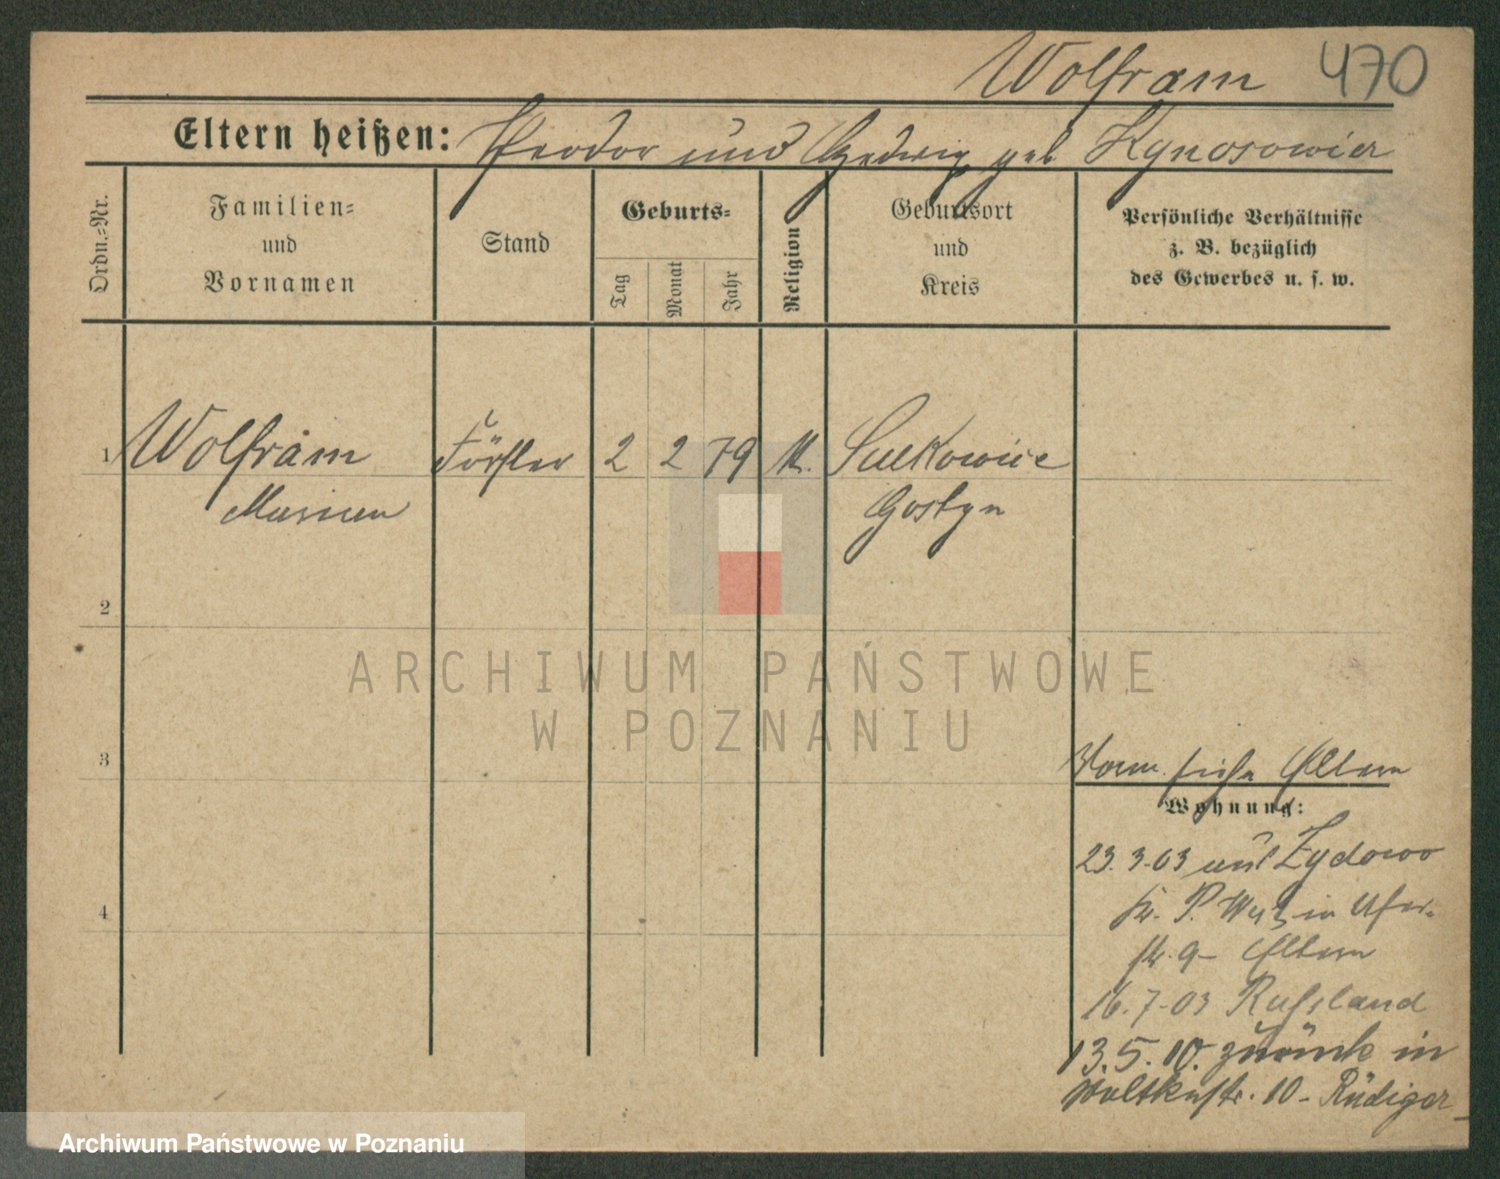 Wolfram 470
Eltern heißen: Theodor und Hedwig geb
Ordn.-Nr.
Familien-
und
Vornamen
Stand
Geburts-
Tag
Monat
Jahr
Religion
Geburtsort
und
Kreis
Persönliche Verhältnisse
z. B. bezüglich
des Gewerbes u. s. w.
1 Wolfram Förster 2 2 79 K. Sulkowice
Gostyn
2
3
4
Vorm. siehe Eltern
Wohnung:
23.3.03 aus Zydowo
Kr. P. West in Ufer-
str. 9 - Eltern
16.7.03 Russland
13.5.10. zurück in
10 - Rüdiger
ARCHIWUM PAŃSTWOWE
W POZNANIU
Archiwum Państwowe w Poznaniu